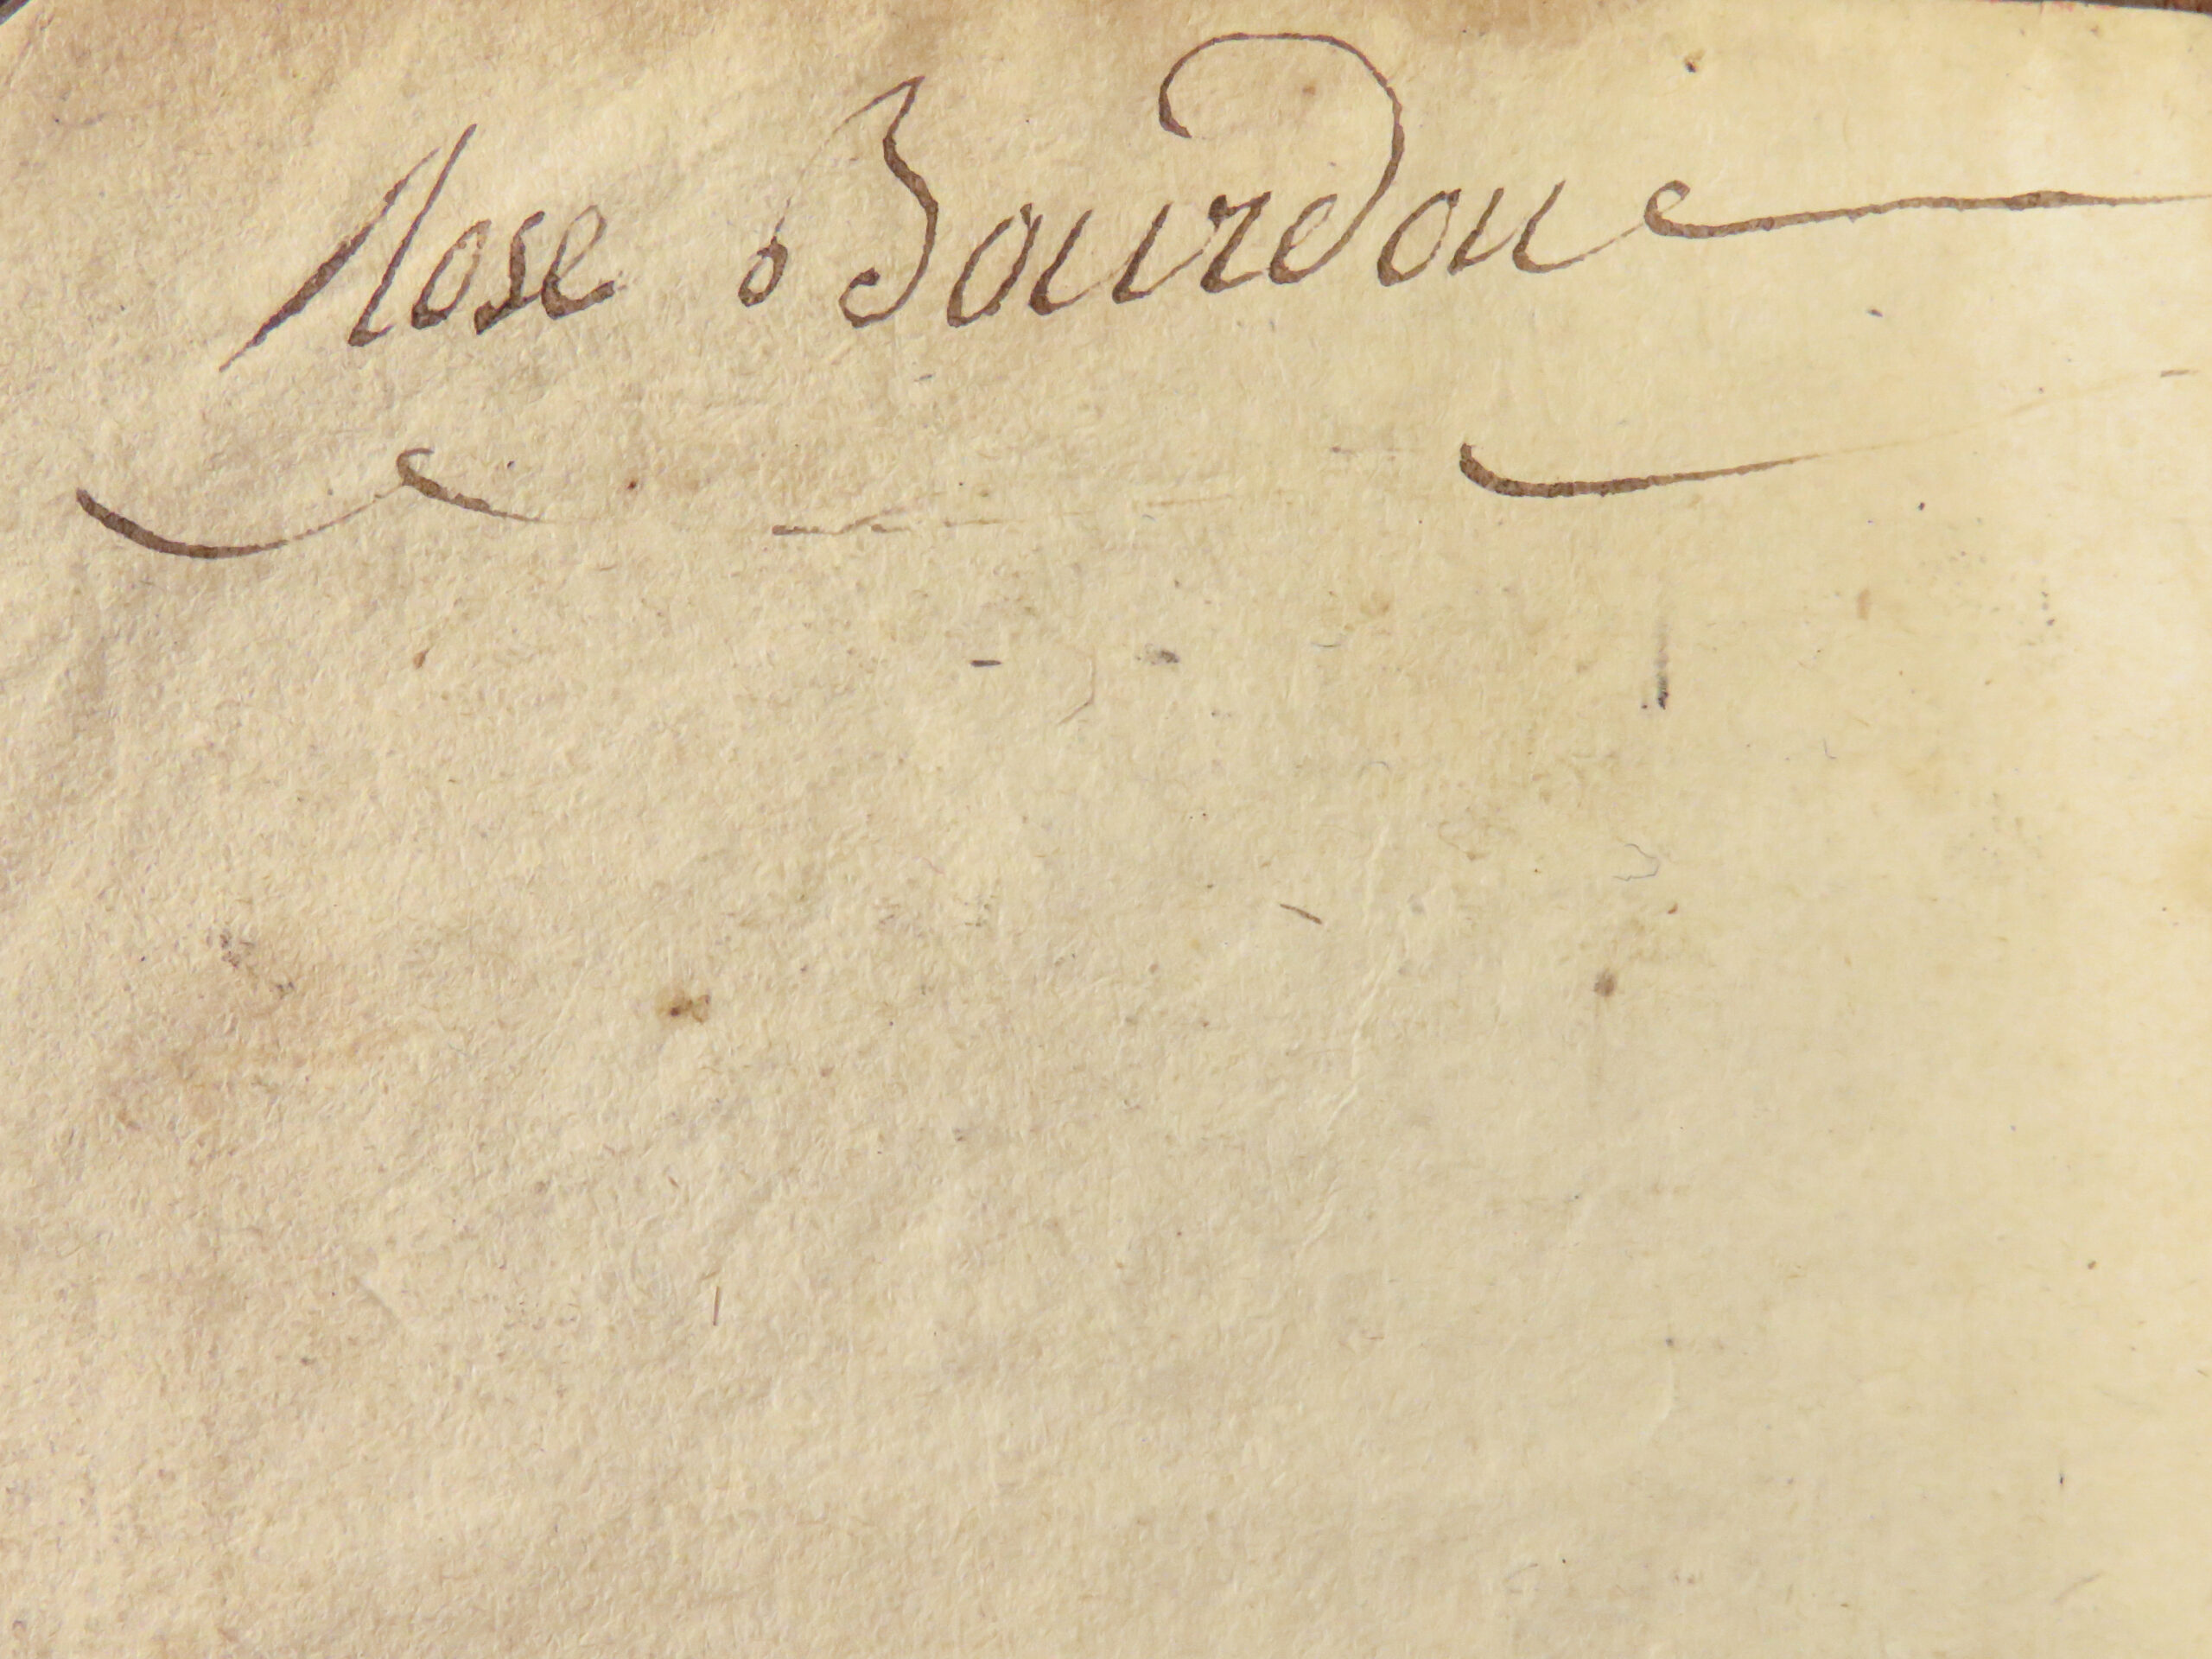 Rose Bourdon